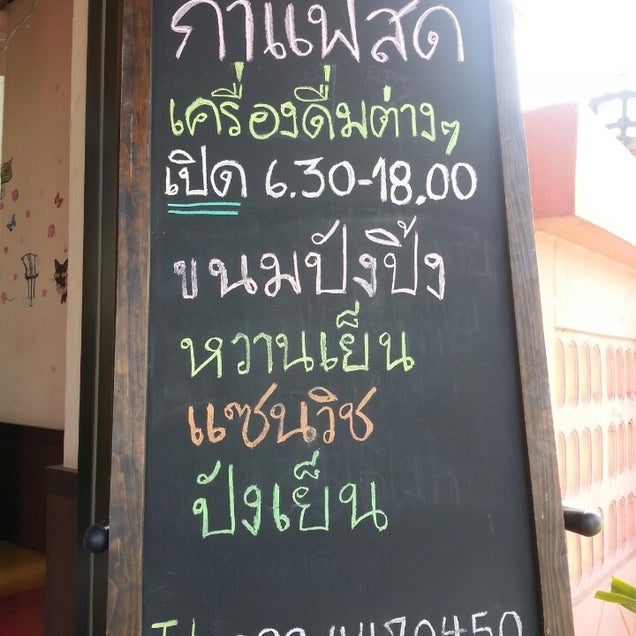 กาแฟสด
เครื่องดื่มต่างๆ
เปิด 6.30-18.00
ขนมปังปิ้ง
หวานเย็น
แซนวิช
ปังเย็น